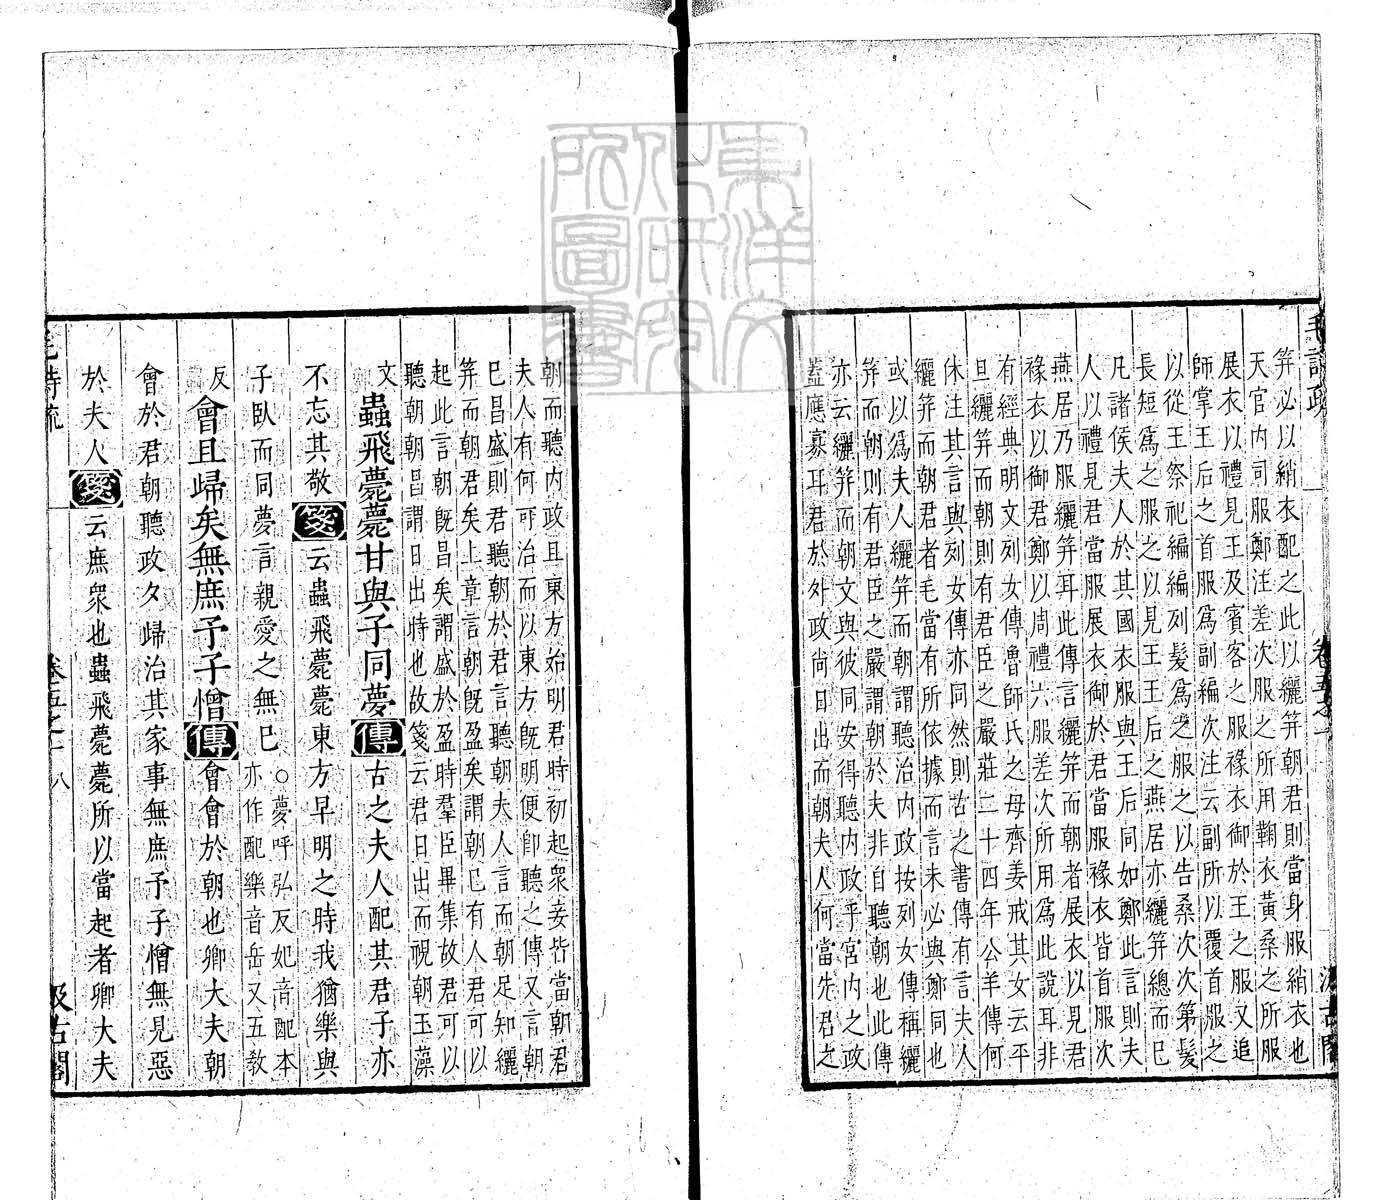 毛詩疏
卷五之一
汲古閣
笄必以綃衣配之此以纚笄朝君則當身服綃衣也
天官内司服鄭注差次服之所用鞠衣黄桑之所服
展衣以禮見王及賓客之服褖衣御於王之服又追
師掌王后之首服爲副編次注云副所以覆首服之
以從王祭祀編編列髮爲之服之以告桑次次第髮
長短爲之服之以見王王后之燕居亦纚笄總而已
凡諸侯夫人於其國衣服與王后同如鄭此言則夫
人以禮見君當服展衣御於君當服褖衣皆首服次
燕居乃服纚笄耳此傳言纚笄而朝者展衣以見君
褖衣以御君鄭以周禮六服差次所用爲此說耳非
有經典明文列女傳魯師氏之母齊姜戒其女云平
旦纚笄而朝則有君臣之嚴莊二十四年公羊傳何
休注其言與列女傳亦同然則古之書傳有言夫人
纚笄而朝君者毛當有所依據而言未必與鄭同也
或以爲夫人纚笄而朝謂聽治内政按列女傳稱纚
笄而朝則有君臣之嚴謂朝於夫非自聽朝也此傳
亦云纚笄而朝文與彼同安得聽内政乎宮内之政
蓋應寡耳君於外政尚日出而朝夫人何當先君之
朝而聽内政且東方始明君時初起衆妾皆當朝君
夫人有何可治而以東方旣明便卽聽之傳又言朝
已昌盛則君聽朝於君言聽朝夫人言而朝足知纚
笄而朝君矣上章言朝旣盈矣謂朝已有人君可以
起此言朝旣昌矣謂盛於盈時羣臣畢集故君可以
聽朝朝昌謂日出時也故箋云君日出而視朝玉藻
文　蟲飛薨薨甘與子同夢傳古之夫人配其君子亦
不忘其敬箋云蟲飛薨薨東方早明之時我猶樂與
子臥而同夢言親愛之無已○夢呼弘反妃音配本
亦作配樂音岳又五敎
反　會且歸矣無庶予子憎傳會會於朝也卿大夫朝
會於君朝聽政夕歸治其家事無庶予子憎無見惡
於夫人箋云庶衆也蟲飛薨薨所以當起者卿大夫
毛詩疏
卷五之一　八
汲古閣
東洋文化研究所圖書